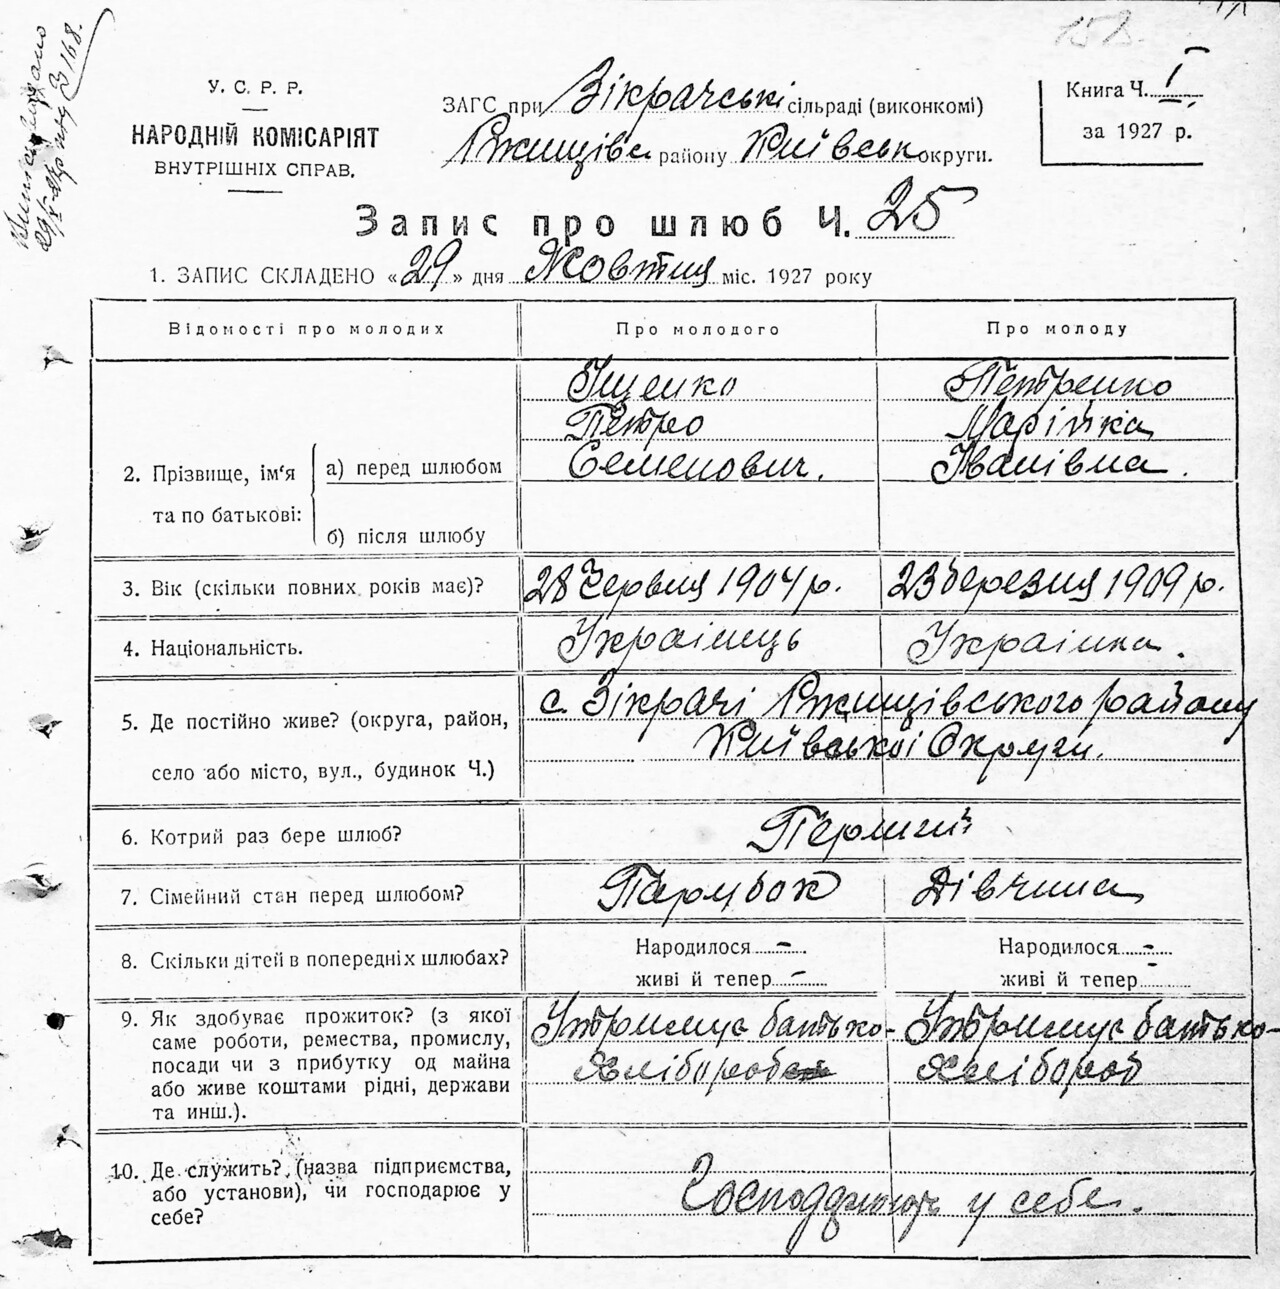 158.
У. С. Р. Р.
НАРОДНІЙ КОМІСАРІЯТ
ВНУТРІШНІХ СПРАВ.
ЗАГС при Зікрачські сільраді (виконкомі)
Ржищівс району Київськ округи.
Книга Ч. I
за 1927 р.
Запис про шлюб Ч. 25
1. ЗАПИС СКЛАДЕНО «29» дня Жовтня міс. 1927 року
Відомості про молодих
Про молодого
Про молоду
2. Прізвище, ім'я та по батькові:
а) перед шлюбом
б) після шлюбу
Іщенко
Петро
Семенович.
Петренко
Марійка
Іванівна.
3. Вік (скільки повних років має)?
28 Червня 1904 р.
23 березня 1909 р.
4. Національність.
Українець
Українка.
5. Де постійно живе? (округа, район,
село або місто, вул., будинок Ч.)
с. Зікрачі Ржищівського району
Київської Округи.
6. Котрий раз бере шлюб?
Перший
7. Сімейний стан перед шлюбом?
Парубок
Дівчина
8. Скільки дітей в попередніх шлюбах?
Народилося -
живі й тепер -
Народилося -
живі й тепер -
9. Як здобуває прожиток? (з якої
саме роботи, ремества, промислу,
посади чи з прибутку од майна
або живе коштами рідні, держави
та инш.).
Утримує батько-
Хлібороб
Утримує батько-
Хлібороб
10. Де служить? (назва підприємства,
або установи), чи господарює у
себе?
Господарюють у себе.